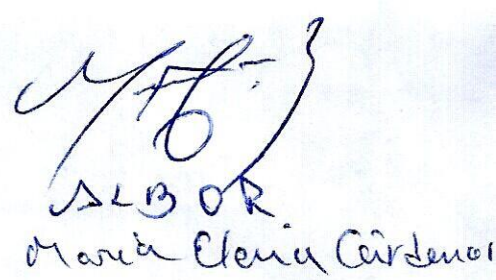 ALBOR
Maria Elena Cárdenas